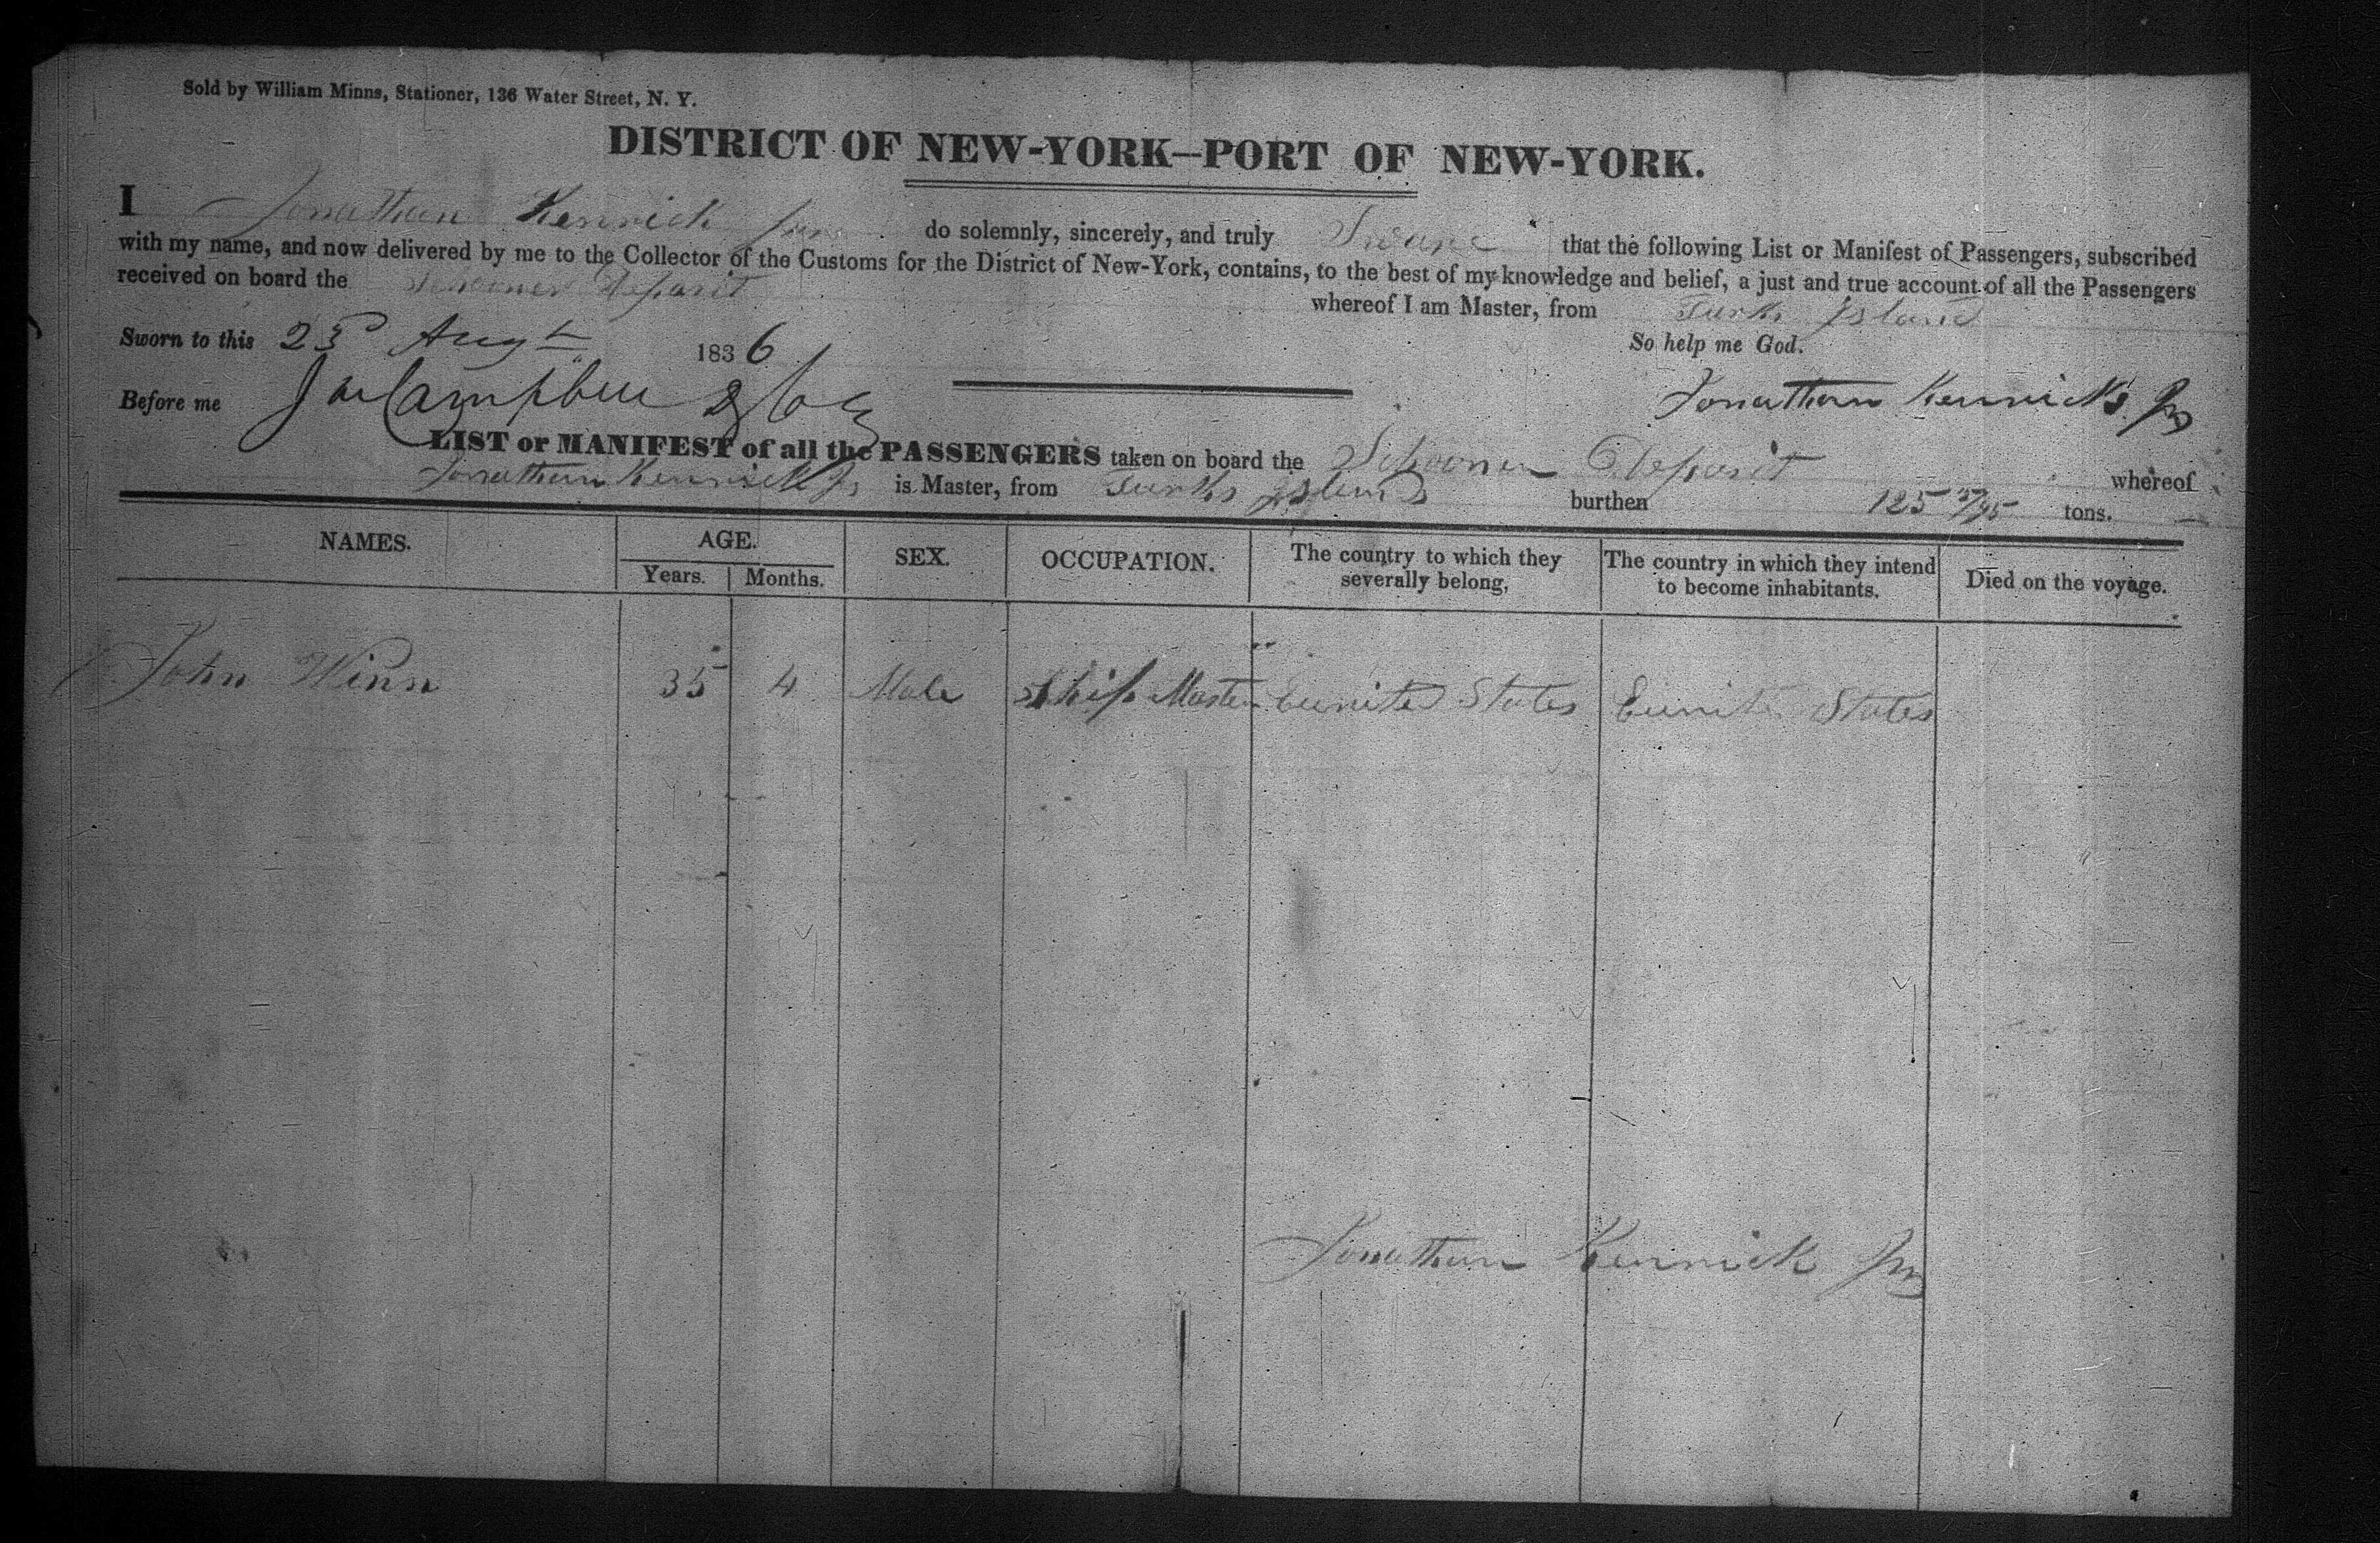 Sold by William Minns, Stationer, 136 Water Street, N. Y.
DISTRICT OF NEW-YORK—PORT OF NEW-YORK.
I Jonathan Kenrick Jun do solemnly, sincerely, and truly Sware that the following List or Manifest of Passengers, subscribed
with my name, and now delivered by me to the Collector of the Customs for the District of New-York, contains, to the best of my knowledge and belief, a just and true account of all the Passengers
received on board the Schooner Deposit whereof I am Master, from Turks Island
Sworn to this 23d Augt 1836 So help me God.
Before me Campbell Jonathan Kenrick Jr
LIST or MANIFEST of all the PASSENGERS taken on board the Schooner Deposit whereof
Jonathan Kenrick Jr is Master, from Turks Island burthen 125 tons.
NAMES. AGE. SEX. OCCUPATION. The country to which they severally belong, The country in which they intend to become inhabitants. Died on the voyage.
Years. Months.
John Winn 35 4 Male Ship Master Eunited States Eunited States
Jonathan Kenrick Jr